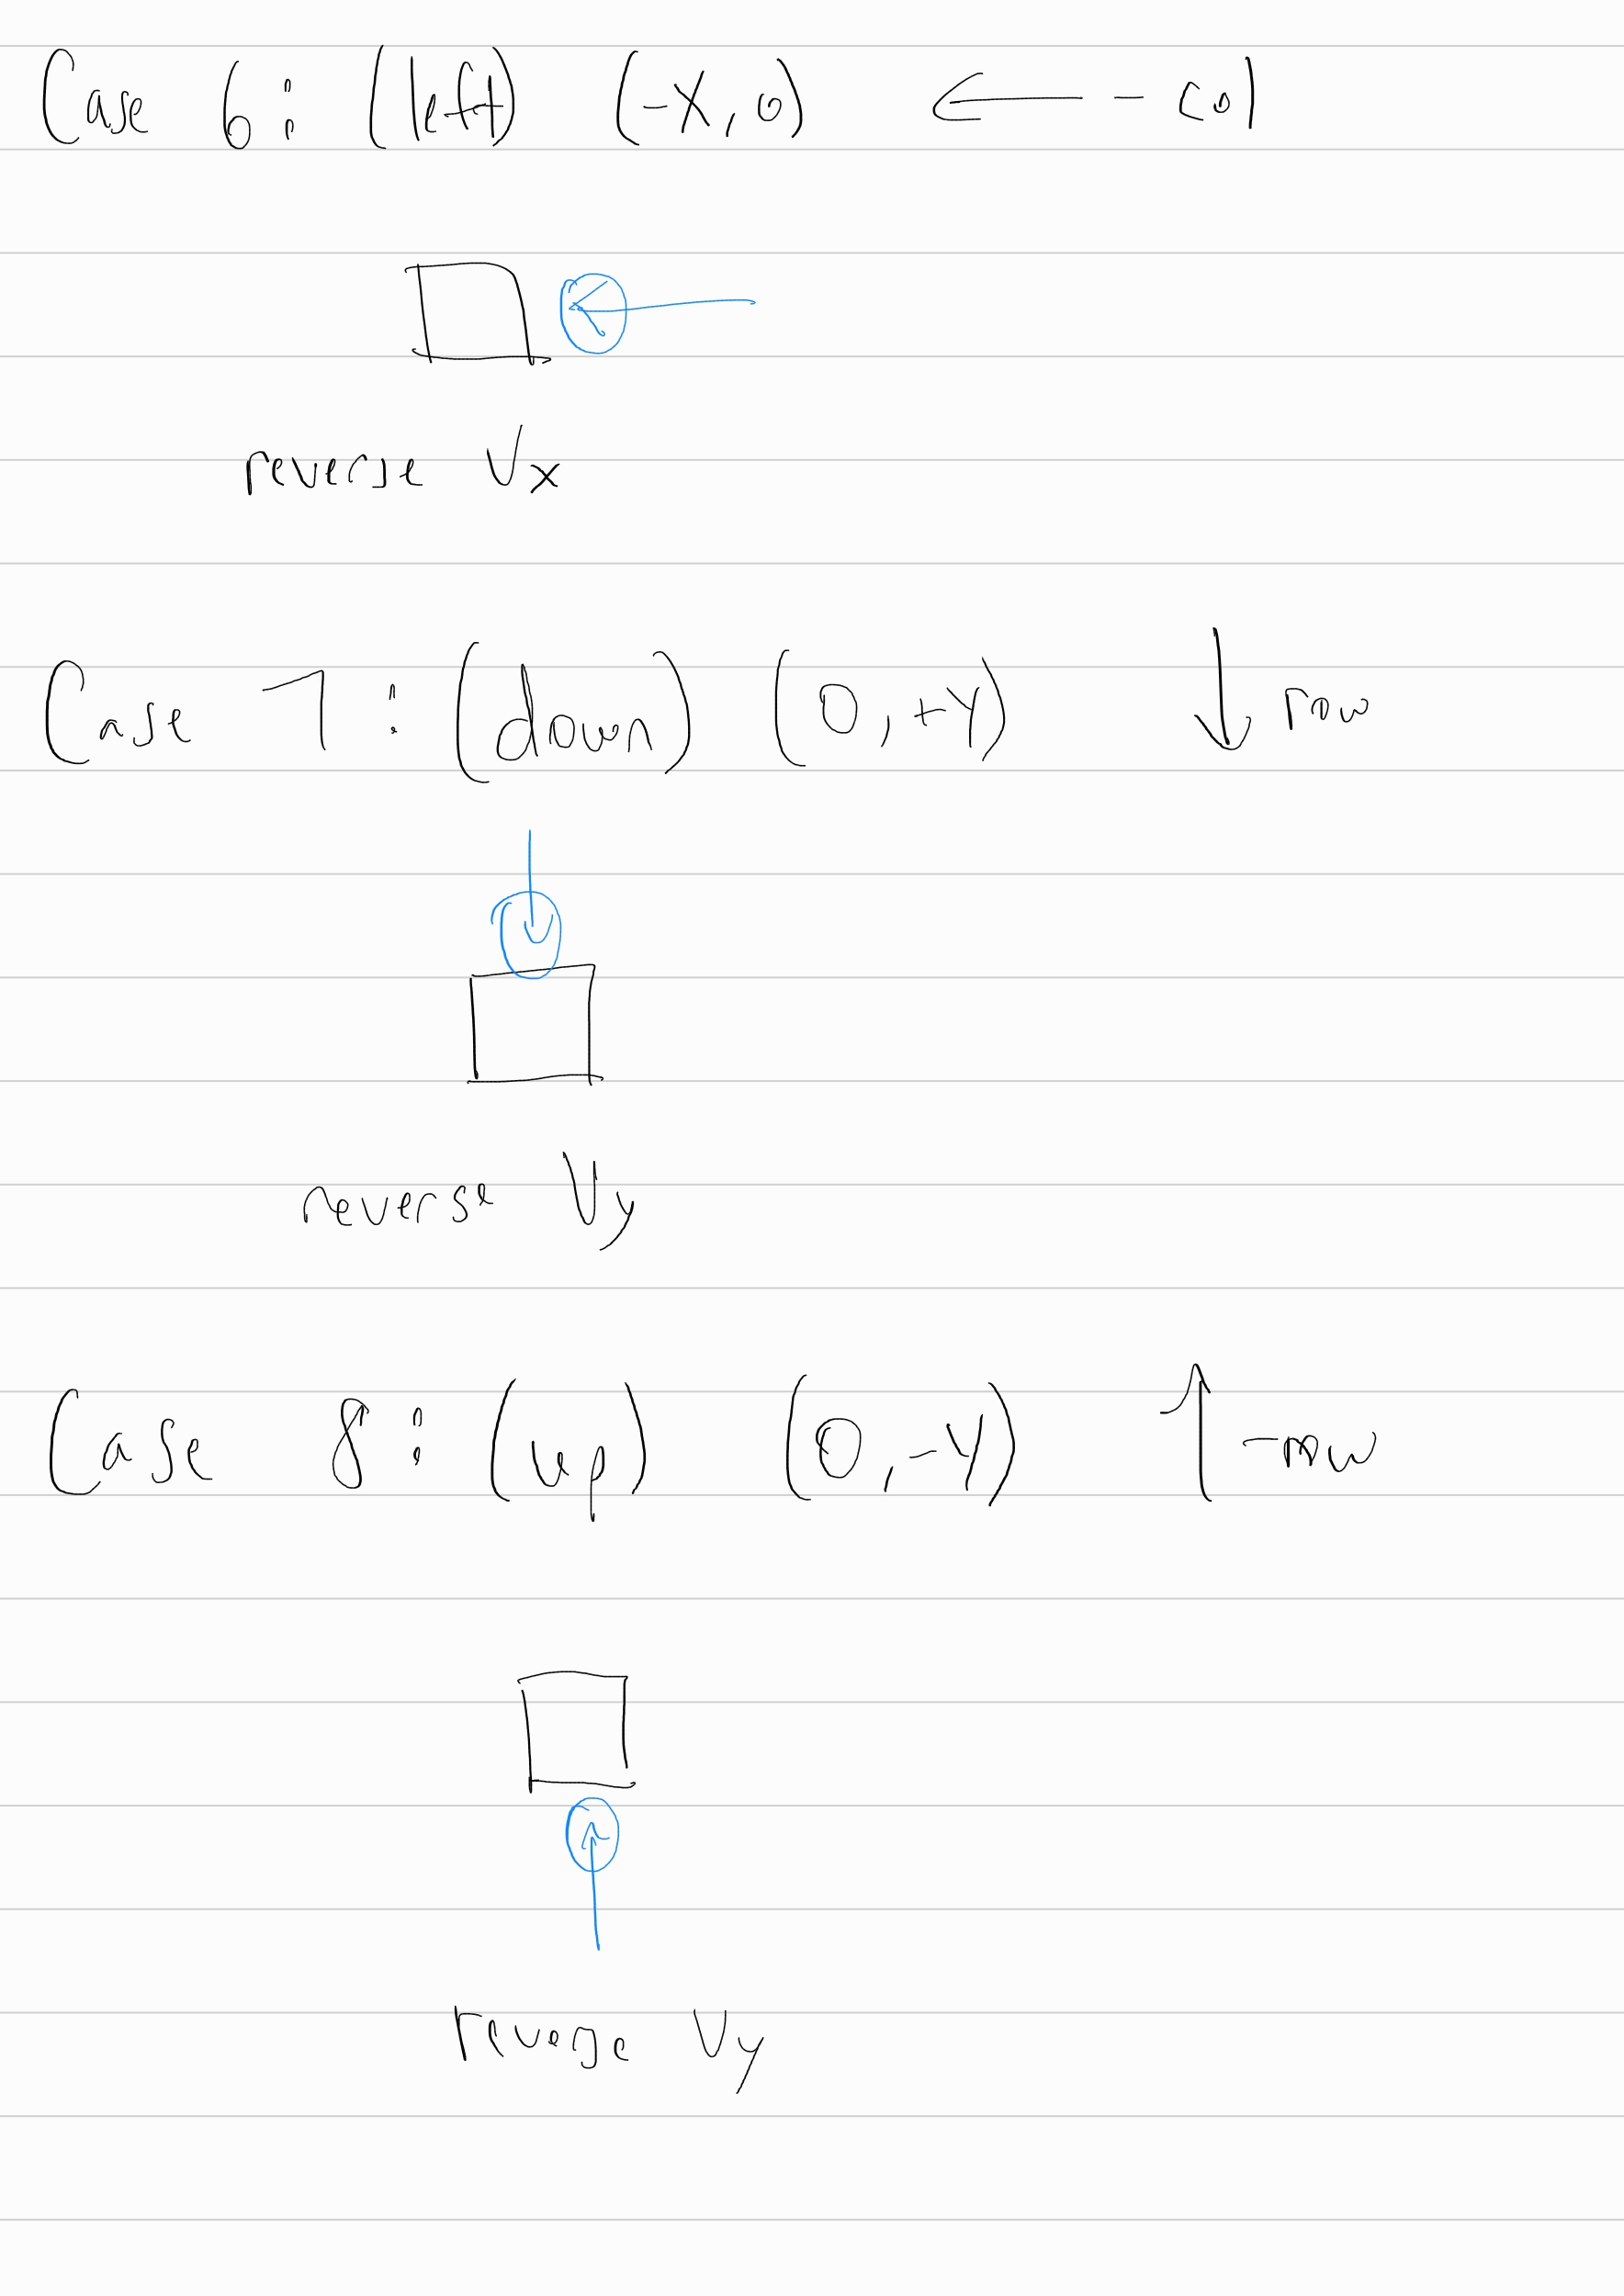 Case 6: (left) (-X, 0) ← - col
reverse Vx
Case 7: (down) (0, +Y) ↓ row
reverse Vy
Case 8: (up) (0, -Y) ↑ -row
reverse Vy